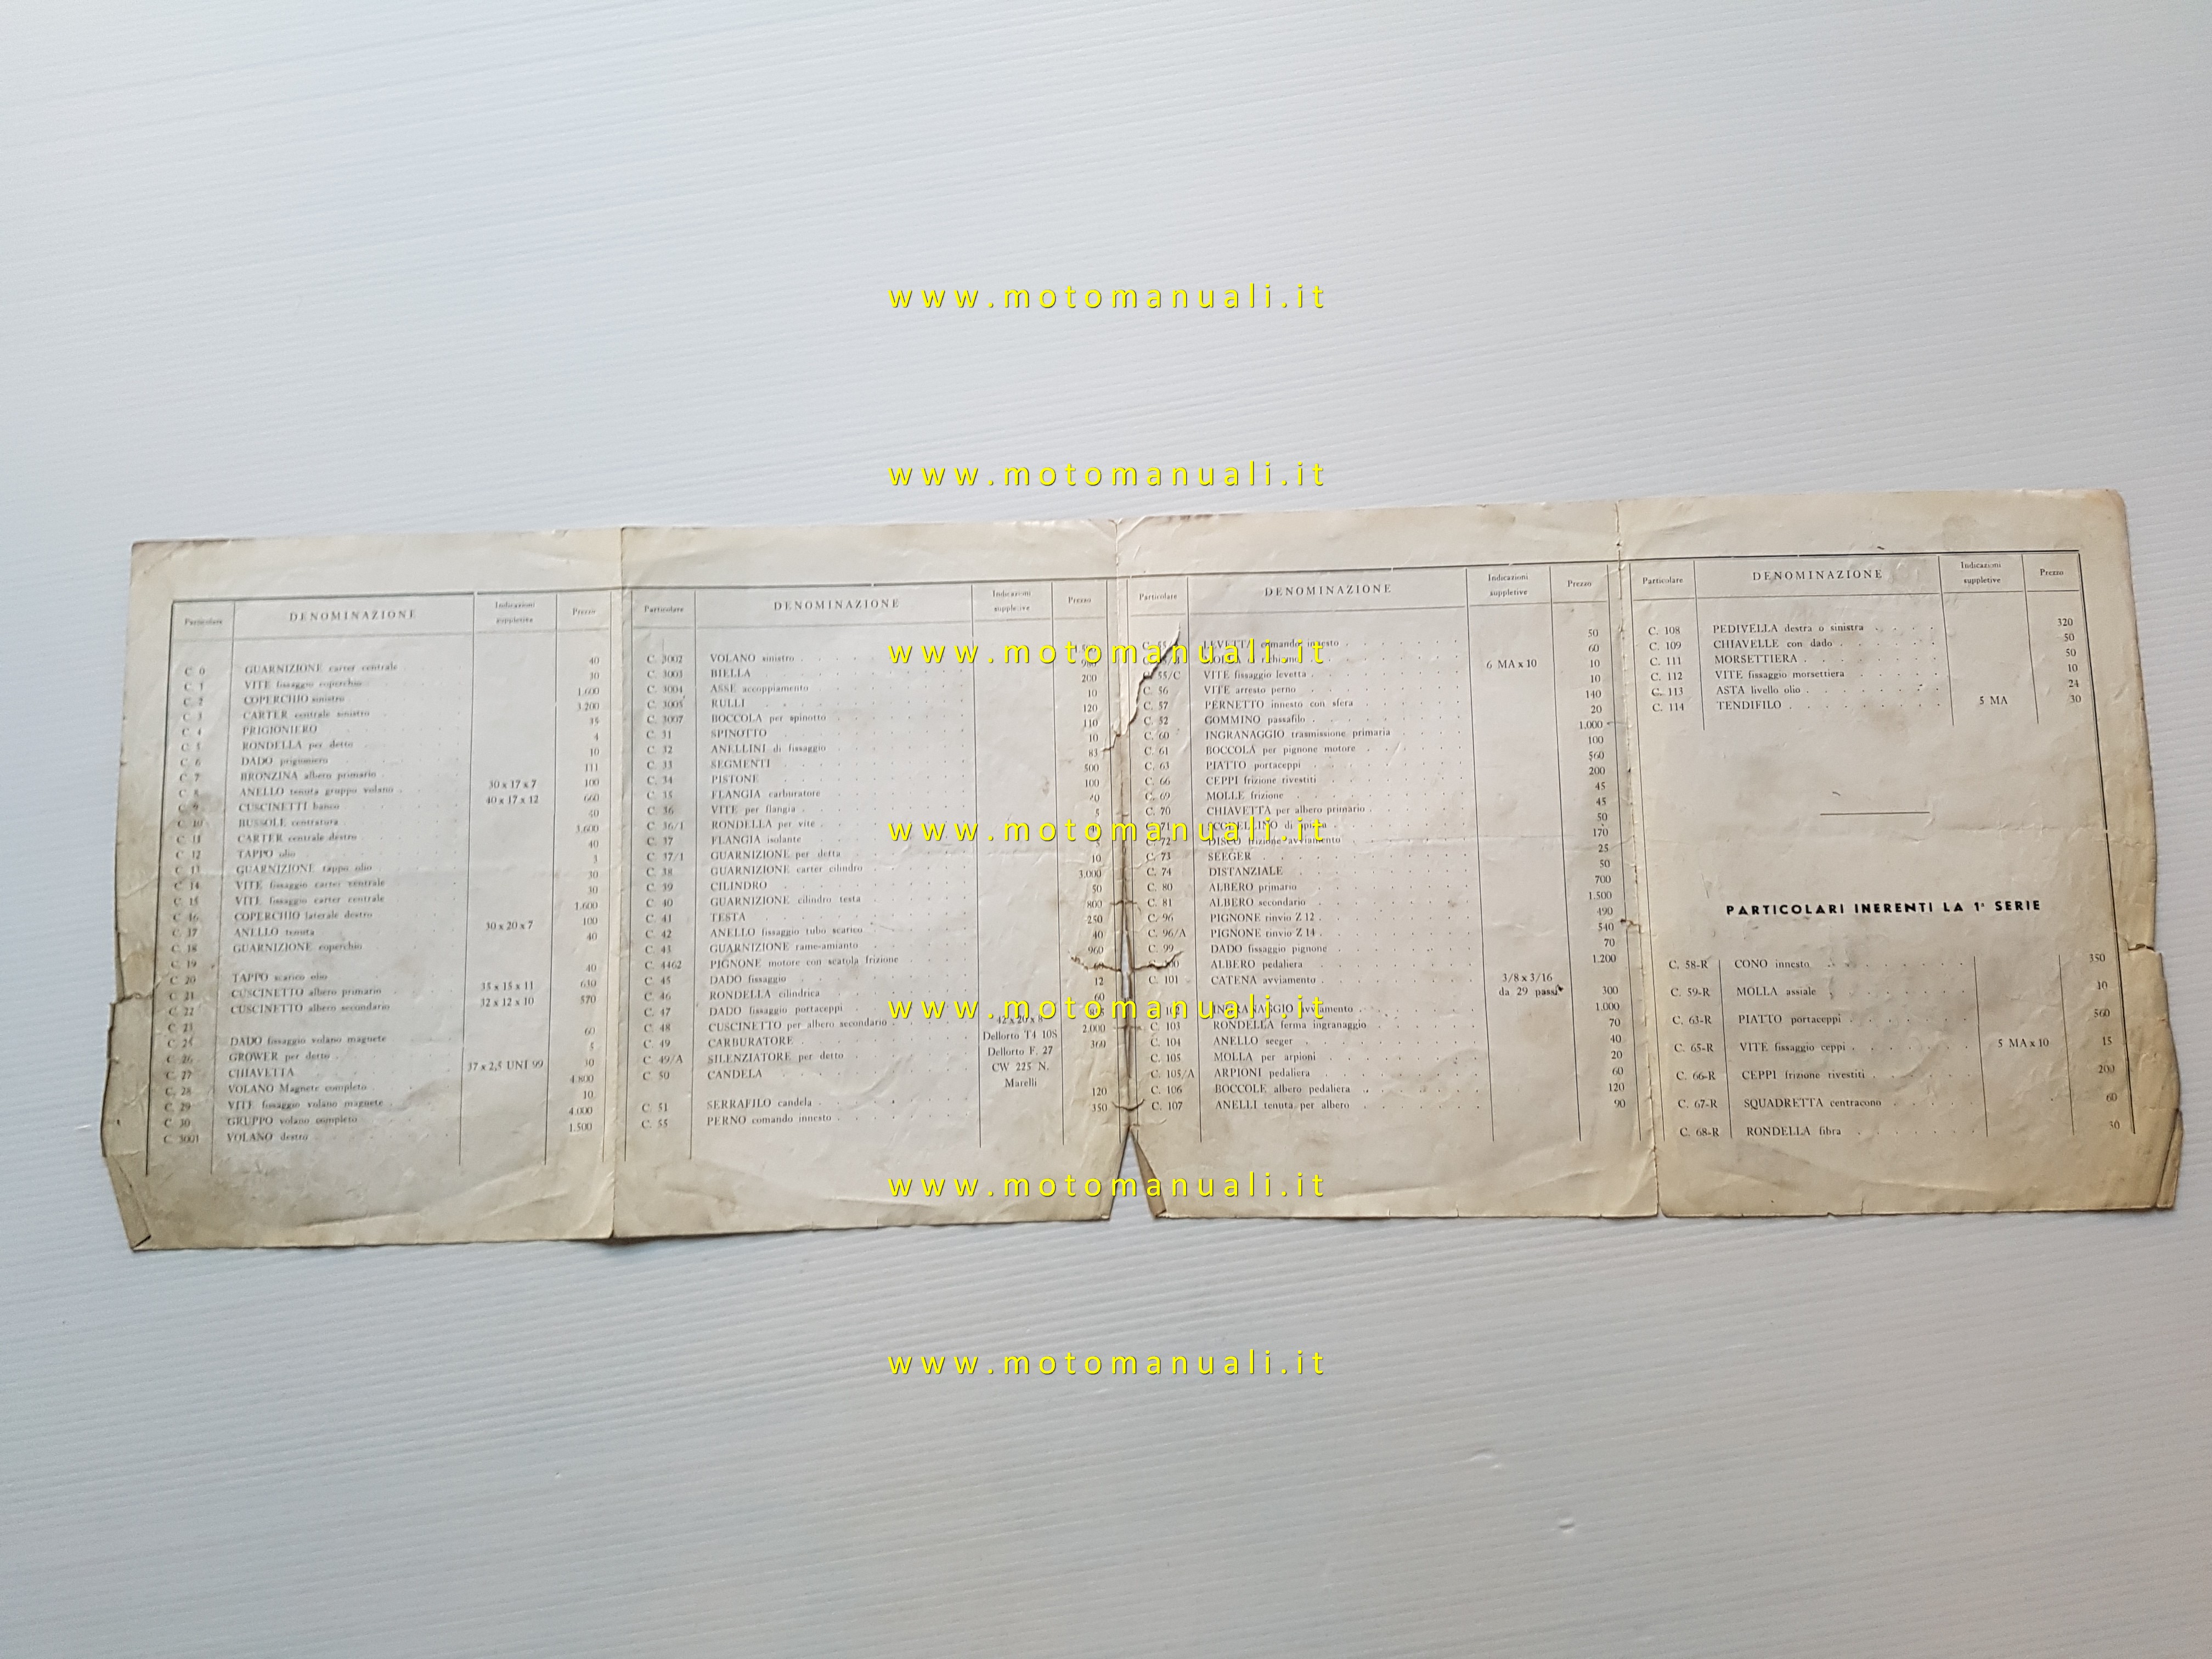 www.motomanuali.it
www.motomanuali.it
Particolare DENOMINAZIONE Indicazioni suppletive Prezzo
C 0 GUARNIZIONE carter centrale 40
C 1 VITE fissaggio coperchio 30
C 2 COPERCHIO sinistro 1.600
C 3 CARTER centrale sinistro 3.200
C 4 PRIGIONIERO 35
C 5 RONDELLA per detto 4
C 6 DADO prigioniero 10
C 7 BRONZINA albero primario 111
C 8 ANELLO tenuta gruppo volano 30 x 17 x 7 100
C 9 CUSCINETTI banco 40 x 17 x 12 660
C 10 BUSSOLE centratura 40
C 11 CARTER centrale destro 3.600
C 12 TAPPO olio 40
C 13 GUARNIZIONE tappo olio 3
C 14 VITE fissaggio carter centrale 30
C 15 VITE fissaggio carter centrale 30
C 16 COPERCHIO laterale destro 1.600
C 17 ANELLO tenuta 30 x 20 x 7 100
C 18 GUARNIZIONE coperchio 40
C 19
C 20 TAPPO scarico olio 40
C 21 CUSCINETTO albero primario 35 x 15 x 11 630
C 22 CUSCINETTO albero secondario 32 x 12 x 10 570
C 23
C 25 DADO fissaggio volano magnete 60
C 26 GROWER per detto 5
C 27 CHIAVETTA 37 x 2,5 UNI 99 30
C 28 VOLANO Magnete completo 4.800
C 29 VITE fissaggio volano magnete 10
C 30 GRUPPO volano completo 4.000
C 3001 VOLANO destro 1.500
Particolare DENOMINAZIONE Indicazioni suppletive Prezzo
C. 3002 VOLANO sinistro
C. 3003 BIELLA 900
C. 3004 ASSE accoppiamento 200
C. 3005 RULLI 10
C. 3007 BOCCOLA per spinotto 120
C. 31 SPINOTTO 110
C. 32 ANELLINI di fissaggio 10
C. 33 SEGMENTI 83
C. 34 PISTONE 500
C. 35 FLANGIA carburatore 100
C. 36 VITE per flangia 20
C. 36/1 RONDELLA per vite 5
C. 37 FLANGIA isolante
C. 37/1 GUARNIZIONE per detta
C. 38 GUARNIZIONE carter cilindro 10
C. 39 CILINDRO 3.000
C. 40 GUARNIZIONE cilindro testa 50
C. 41 TESTA 800
C. 42 ANELLO fissaggio tubo scarico 250
C. 43 GUARNIZIONE rame-amianto 40
C. 4462 PIGNONE motore con scatola frizione 960
C. 45 DADO fissaggio
C. 46 RONDELLA cilindrica 12
C. 47 DADO fissaggio portaceppi 60
C. 48 CUSCINETTO per albero secondario 42 x 20 x 8
C. 49 CARBURATORE Dellorto T4 10S 2.000
C. 49/A SILENZIATORE per detto Dellorto F. 27 360
C. 50 CANDELA CW 225 N.
Marelli
C. 51 SERRAFILO candela 120
C. 55 PERNO comando innesto 350
Particolare DENOMINAZIONE Indicazioni suppletive Prezzo
LEVETTA comando innesto 50
60
55/C VITE fissaggio levetta 6 MA x 10 10
C. 56 VITE arresto perno 10
C. 57 PERNETTO innesto con sfera 140
C. 52 GOMMINO passafilo 20
C. 60 INGRANAGGIO trasmissione primaria 1.000
C. 61 BOCCOLA per pignone motore 100
C. 63 PIATTO portaceppi 560
C. 66 CEPPI frizione rivestiti 200
C. 69 MOLLE frizione 45
C. 70 CHIAVETTA per albero primario 45
71 SCODELLINO di spinta 50
C. 72 DISCO frizione avviamento 170
C. 73 SEEGER 25
C. 74 DISTANZIALE 50
C. 80 ALBERO primario 700
C. 81 ALBERO secondario 1.500
C. 96 PIGNONE rinvio Z 12 490
C. 96/A PIGNONE rinvio Z 14 540
C. 99 DADO fissaggio pignone 70
ALBERO pedaliera 1.200
C. 101 CATENA avviamento 3/8 x 3/16
da 29 passi 300
C. 102 INGRANAGGIO avviamento 1.000
C. 103 RONDELLA ferma ingranaggio 70
C. 104 ANELLO seeger 40
C. 105 MOLLA per arpioni 20
C. 105/A ARPIONI pedaliera 60
C. 106 BOCCOLE albero pedaliera 120
C. 107 ANELLI tenuta per albero 90
Particolare DENOMINAZIONE Indicazioni suppletive Prezzo
C. 108 PEDIVELLA destra o sinistra 320
C. 109 CHIAVELLE con dado 50
C. 111 MORSETTIERA 50
C. 112 VITE fissaggio morsettiera 10
C. 113 ASTA livello olio 24
C. 114 TENDIFILO 5 MA 30
PARTICOLARI INERENTI LA 1ª SERIE
C. 58-R CONO innesto 350
C. 59-R MOLLA assiale 10
C. 63-R PIATTO portaceppi 560
C. 65-R VITE fissaggio ceppi 5 MA x 10 15
C. 66-R CEPPI frizione rivestiti 200
C. 67-R SQUADRETTA centracono 60
C. 68-R RONDELLA fibra 30
www.motomanuali.it
www.motomanuali.it
www.motomanuali.it
www.motomanuali.it
www.motomanuali.it